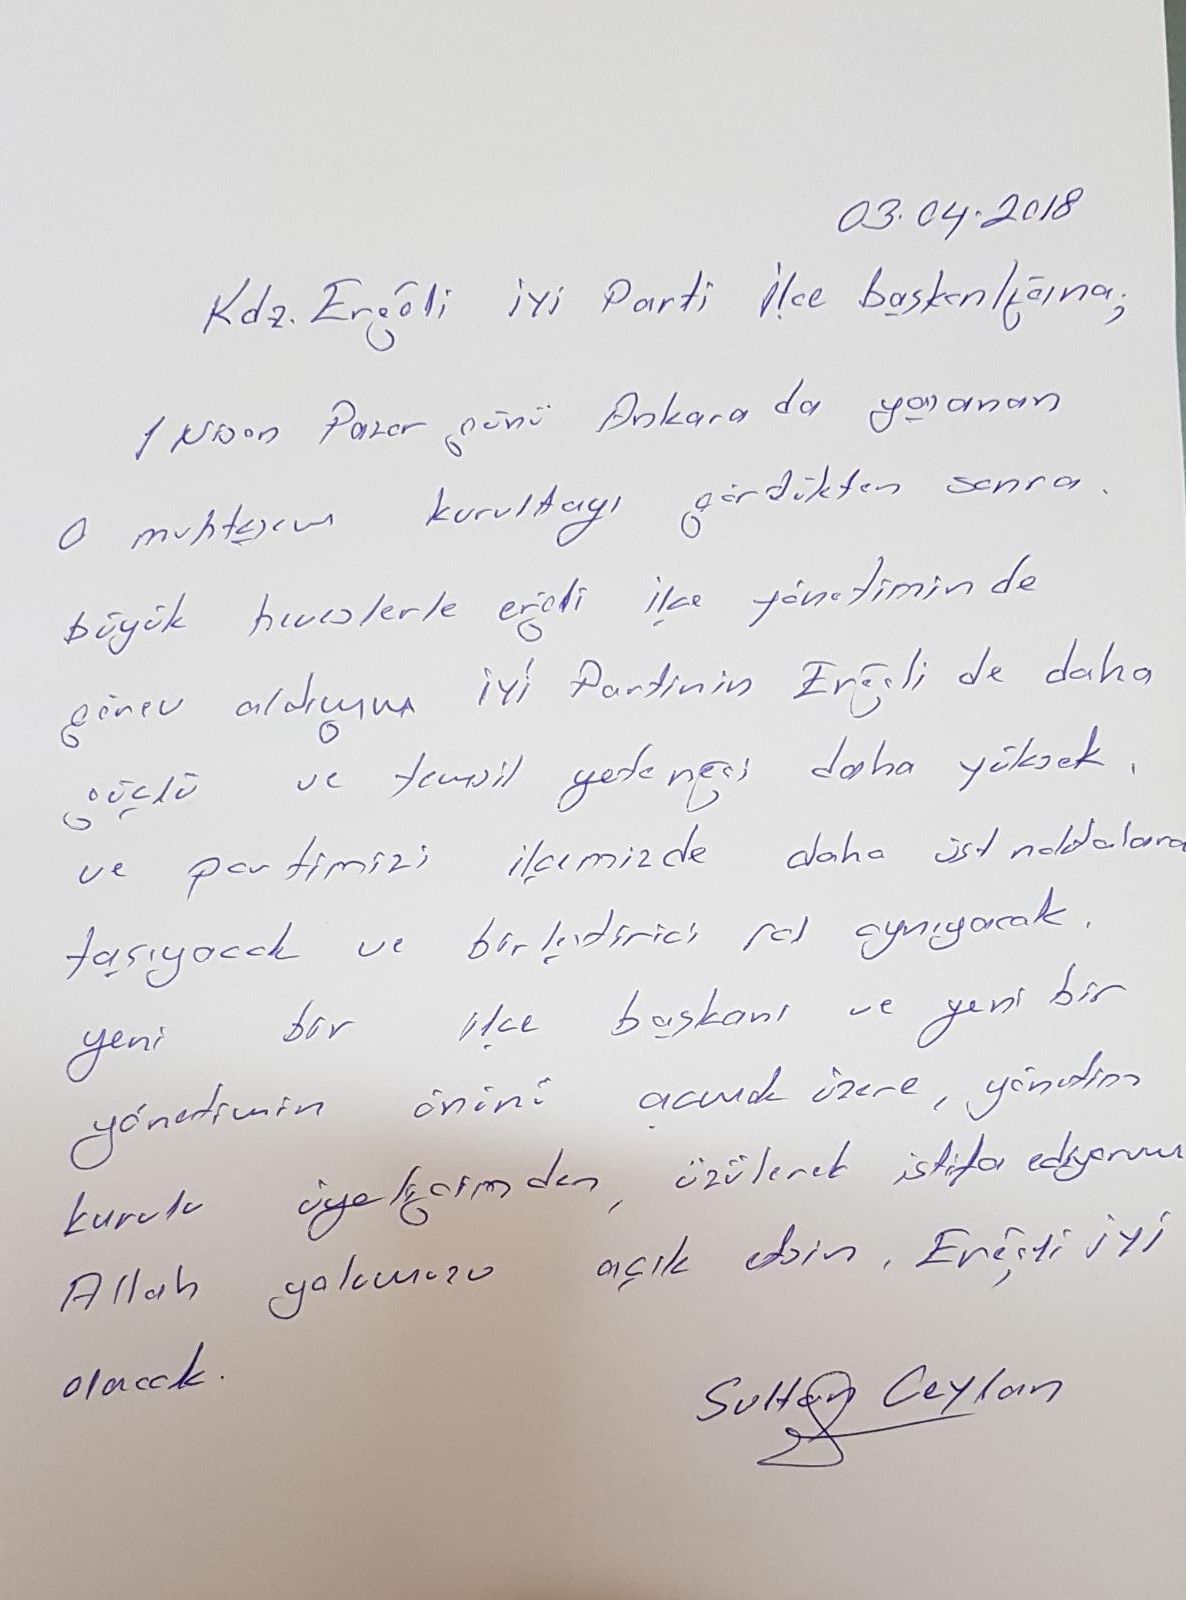 03.04.2018
Kdz. Ereğli iyi Parti ilçe başkanlığına;
1 Nisan Pazar günü Ankara da yaşanan
o muhteşem kurultayı gördükten sonra.
büyük heveslerle ereğli ilçe yönetiminde
görev aldığım iyi Partinin Ereğli de daha
güçlü ve temsil yeteneği daha yüksek,
ve partimizi ilçemizde daha üst noktalara
taşıyacak ve birleştirici rol oynıyacak.
yeni bir ilçe başkanı ve yeni bir
yönetimin önünü açmak üzere, yönetim
kurulu üyeliğimden, üzülerek istifa ediyorum
Allah yolumuzu açık etsin. Ereğli iyi
olacak.
Sultan Ceylan